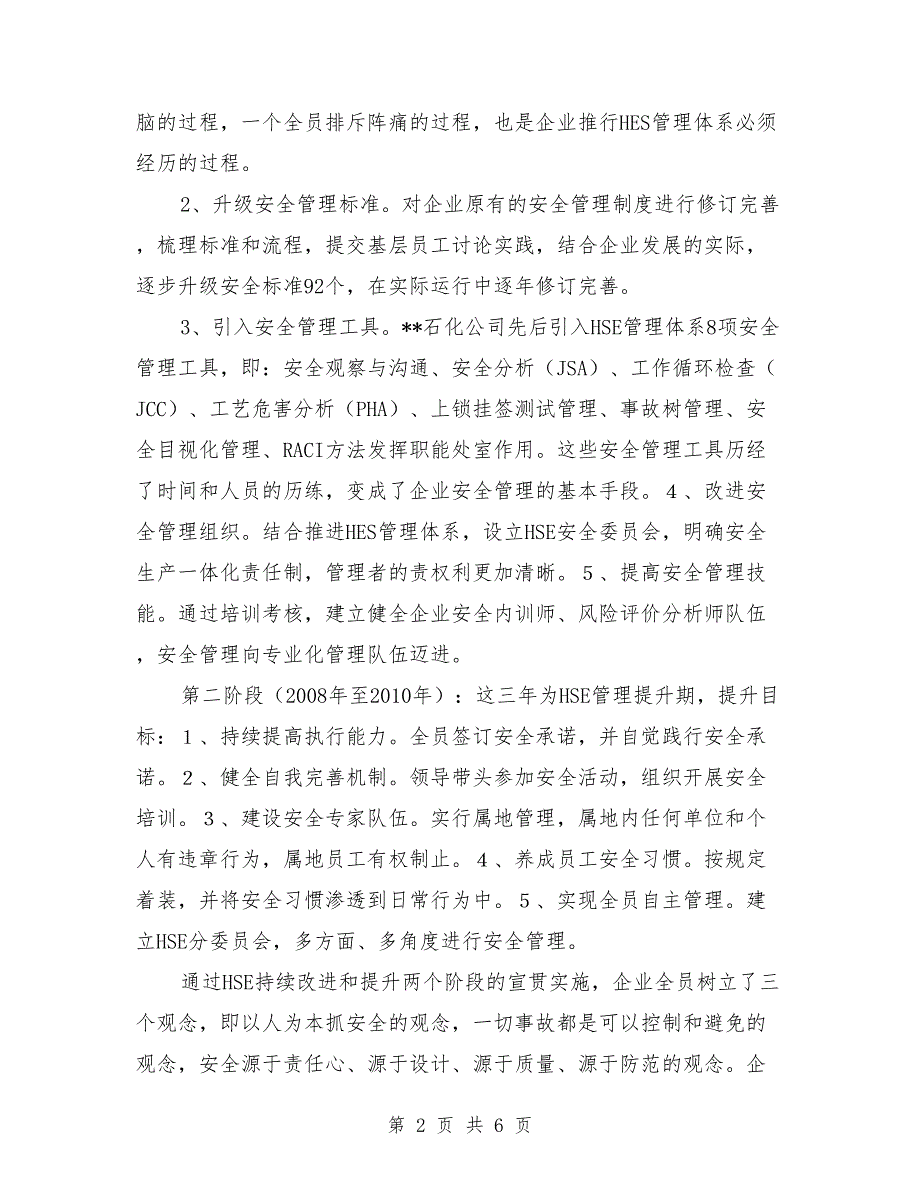 脑的过程，一个全员排斥阵痛的过程，也是企业推行HES管理体系必须
经历的过程。
2、升级安全管理标准。对企业原有的安全管理制度进行修订完善
，梳理标准和流程，提交基层员工讨论实践，结合企业发展的实际，
逐步升级安全标准92个，在实际运行中逐年修订完善。
3、引入安全管理工具。**石化公司先后引入HSE管理体系8项安全
管理工具，即：安全观察与沟通、安全分析（JSA）、工作循环检查（
JCC）、工艺危害分析（PHA）、上锁挂签测试管理、事故树管理、安
全目视化管理、RACI方法发挥职能处室作用。这些安全管理工具历经
了时间和人员的历练，变成了企业安全管理的基本手段。４、改进安
全管理组织。结合推进HES管理体系，设立HSE安全委员会，明确安全
生产一体化责任制，管理者的责权利更加清晰。５、提高安全管理技
能。通过培训考核，建立健全企业安全内训师、风险评价分析师队伍
，安全管理向专业化管理队伍迈进。
第二阶段（2008年至2010年）：这三年为HSE管理提升期，提升目
标：１、持续提高执行能力。全员签订安全承诺，并自觉践行安全承
诺。２、健全自我完善机制。领导带头参加安全活动，组织开展安全
培训。３、建设安全专家队伍。实行属地管理，属地内任何单位和个
人有违章行为，属地员工有权制止。４、养成员工安全习惯。按规定
着装，并将安全习惯渗透到日常行为中。５、实现全员自主管理。建
立HSE分委员会，多方面、多角度进行安全管理。
通过HSE持续改进和提升两个阶段的宣贯实施，企业全员树立了三
个观念，即以人为本抓安全的观念，一切事故都是可以控制和避免的
观念，安全源于责任心、源于设计、源于质量、源于防范的观念。企
第 2 页 共 6 页